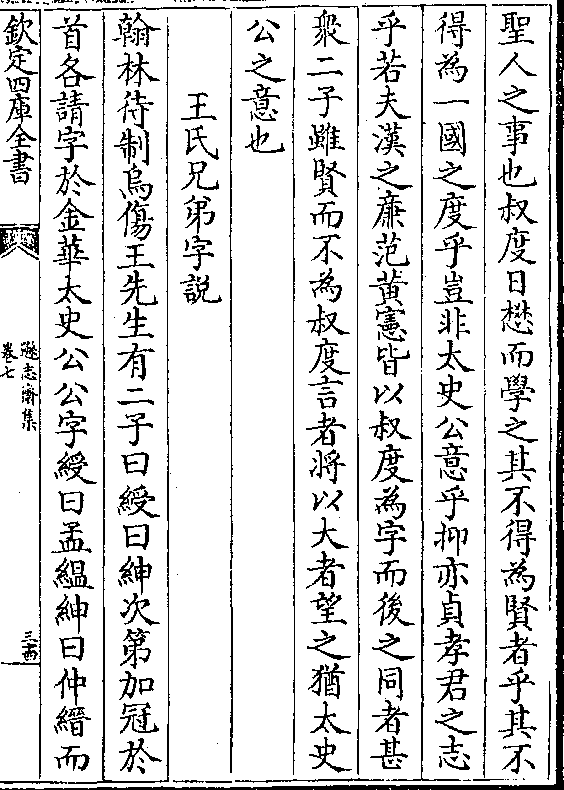 聖人之事也叔度日懋而學之其不得為賢者乎其不
得為一國之度乎豈非太史公意乎抑亦貞孝君之志
乎若夫漢之廉范黄憲皆以叔度為字而後之同者甚
衆二子雖賢而不為叔度言者將以大者望之猶太史
公之意也
王氏兄弟字説
翰林待制烏傷王先生有二子曰綬曰紳次第加冠於
首各請字於金華太史公公字綬曰孟緼紳曰仲縉而
欽定四庫全書
遜志齋集
卷七
三十四